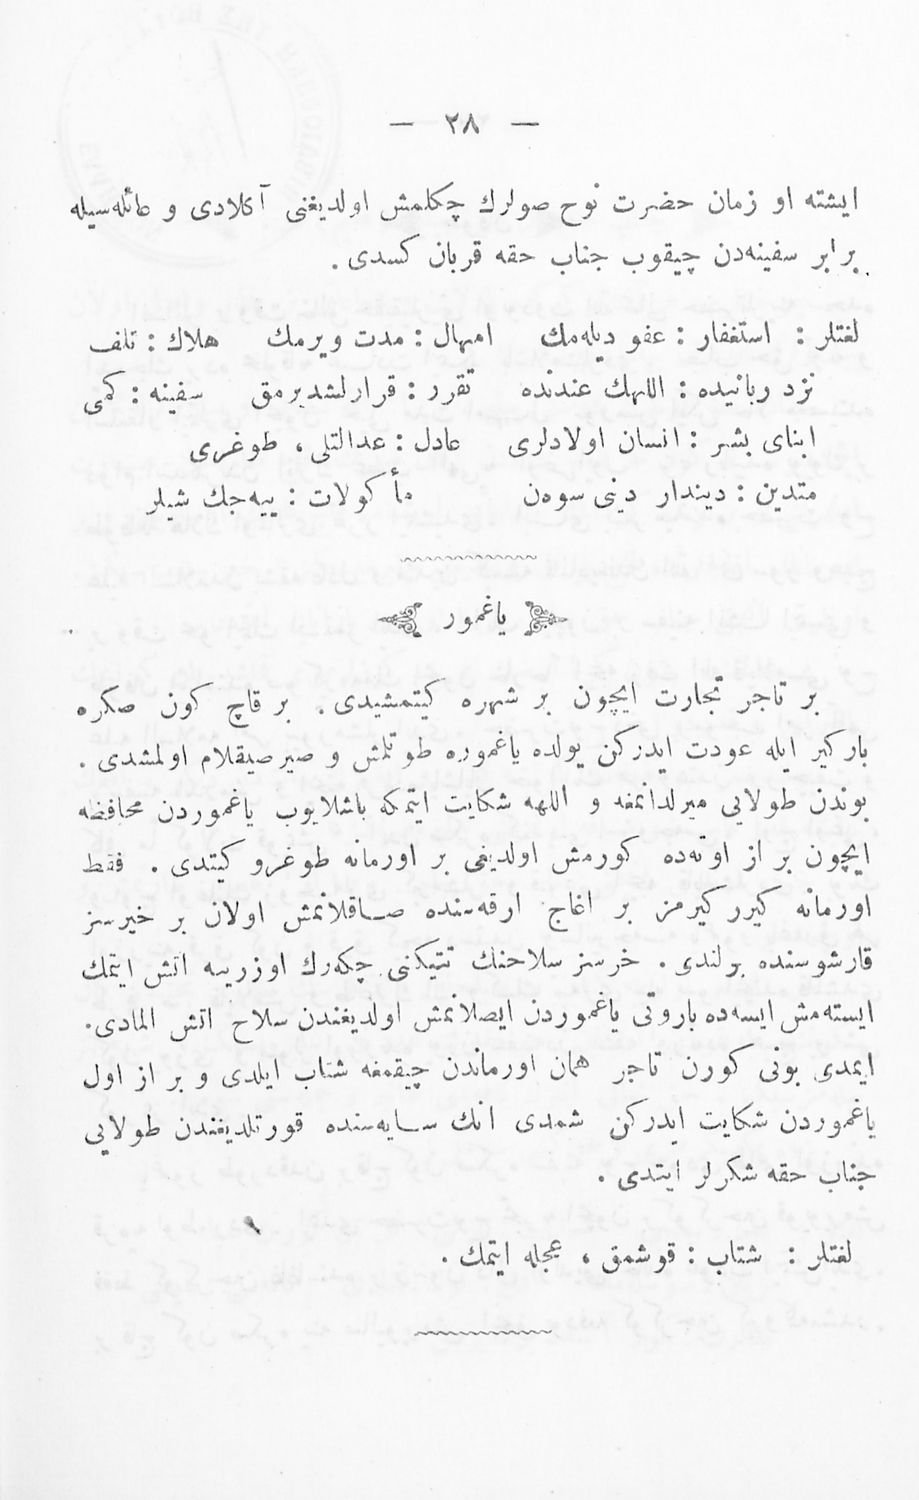 — ٢٨ —
ايشته او زمان حضرت نوح صولرك چكلمش اولديغنى آكلادى و عائله‌سيله
برابر سفينه‌دن چيقوب جناب حقه قربان كسدى .
لغتلر : استغفار : عفو ديله‌مك امهال : مدت ويرمك هلاك : تلف
نزد ربانيده : اللهك عندنده تقرر : قرارلشديرمق سفينه : كمى
ابناى بشر : انسان اولادلرى عادل : عدالتلى ، طوغرى
متدين : ديندار دينى سوه‌ن مأكولات : ييه‌جك شيلر
ياغمور
بر تاجر تجارت ايچون بر شهره كيتمشيدى . بر قاچ كون صكره
باركير ايله عودت ايدركن يولده ياغموره طوتلش و صيرصيقلام اولمشدى .
بوندن طولايى ميرلدانمغه و اللهه شكايت ايتمكه باشلايوب ياغموردن محافظه
ايچون بر از اوته‌ده كورمش اولديغى بر اورمانه طوغرو كيتدى . فقط
اورمانه كيرر كيرمز بر اغاج ارقه‌سنده صاقلانمش اولان بر خيرسز
قارشوسنده برلندى . خرسز سلاحنك تتيكنى چكه‌رك اوزرينه اتش ايتمك
ايسته‌مش ايسه‌ده باروتى ياغموردن ايصلانمش اولديغندن سلاح اتش المادى .
ايمدى بونى كورن تاجر همان اورماندن چيقمغه شتاب ايلدى و بر از اول
ياغموردن شكايت ايدركن شمدى انك سايه‌سنده قورتلديغندن طولايى
جناب حقه شكرلر ايتدى .
لغتلر : شتاب : قوشمق ، عجله ايتمك .